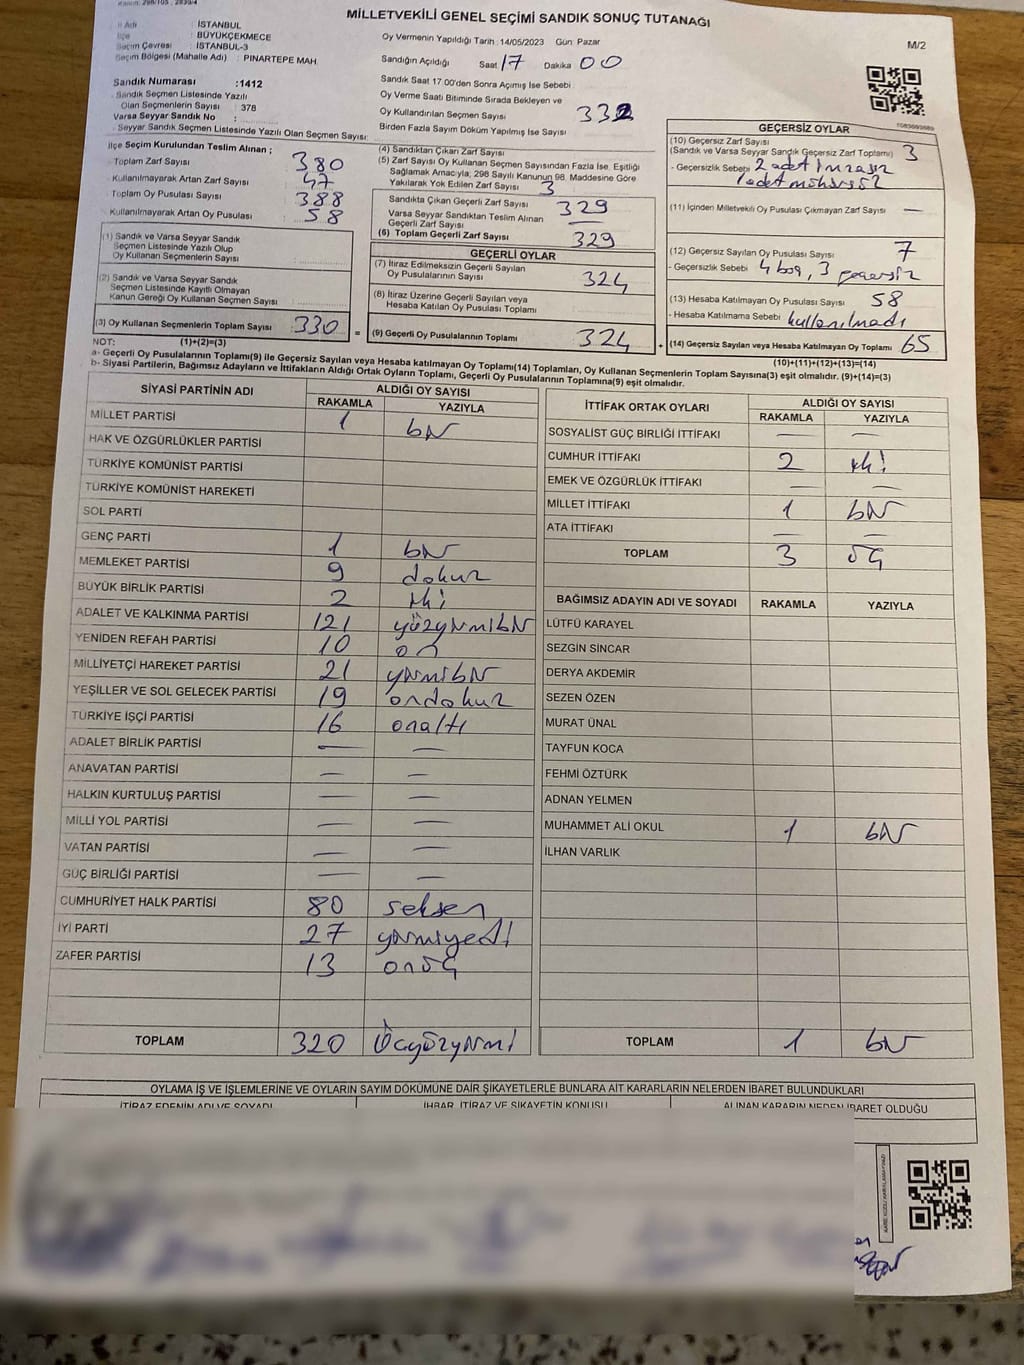 MİLLETVEKİLİ GENEL SEÇİMİ SANDIK SONUÇ TUTANAĞI
M/2
İl Adı : İSTANBUL
İlçe : BÜYÜKÇEKMECE
Seçim Çevresi : İSTANBUL-3
Seçim Bölgesi (Mahalle Adı) : PINARTEPE MAH.
Oy Vermenin Yapıldığı Tarih : 14/05/2023 Gün Pazar
Sandığın Açıldığı Saat 17 Dakika 00
Sandık Saat 17.00'den Sonra Açımış İse Sebebi :
Oy Verme Saati Bitiminde Sırada Bekleyen ve
Oy Kullandırılan Seçmen Sayısı 332
Birden Fazla Sayım Döküm Yapılmış İse Sayısı :
Sandık Numarası :1412
Sandık Seçmen Listesinde Yazılı
Olan Seçmenlerin Sayısı : 378
Varsa Seyyar Sandık No :
Seyyar Sandık Seçmen Listesinde Yazılı Olan Seçmen Sayısı:
İlçe Seçim Kurulundan Teslim Alınan ;
Toplam Zarf Sayısı : 380
Kullanılmayarak Artan Zarf Sayısı : 47
Toplam Oy Pusulası Sayısı : 388
Kullanılmayarak Artan Oy Pusulası : 58
(1) Sandık ve Varsa Seyyar Sandık
Seçmen Listesinde Yazılı Olup
Oy Kullanan Seçmenlerin Sayısı :
(2) Sandık ve Varsa Seyyar Sandık
Seçmen Listesinde Kayıtlı Olmayan
Kanun Gereği Oy Kullanan Seçmen Sayısı :
(3) Oy Kullanan Seçmenlerin Toplam Sayısı : 330 =
(4) Sandıktan Çıkan Zarf Sayısı
(5) Zarf Sayısı Oy Kullanan Seçmen Sayısından Fazla İse, Eşitliği
Sağlamak Amacıyla; 298 Sayılı Kanunun 98. Maddesine Göre
Yakılarak Yok Edilen Zarf Sayısı 3
Sandıkta Çıkan Geçerli Zarf Sayısı 329
Varsa Seyyar Sandıktan Teslim Alınan
Geçerli Zarf Sayısı
(6) Toplam Geçerli Zarf Sayısı 329
GEÇERLİ OYLAR
(7) İtiraz Edilmeksizin Geçerli Sayılan
Oy Pusulalarının Sayısı : 324
(8) İtiraz Üzerine Geçerli Sayılan veya
Hesaba Katılan Oy Pusulası Toplamı :
(9) Geçerli Oy Pusulalarının Toplamı : 324 +
GEÇERSİZ OYLAR
(10) Geçersiz Zarf Sayısı
(Sandık ve Varsa Seyyar Sandık Geçersiz Zarf Toplamı) : 3
- Geçersizlik Sebebi : 2 adet imzasız
1 adet mühürsüz
(11) İçinden Milletvekili Oy Pusulası Çıkmayan Zarf Sayısı : —
(12) Geçersiz Sayılan Oy Pusulası Sayısı : 7
- Geçersizlik Sebebi : 4 boş, 3 geçersiz
(13) Hesaba Katılmayan Oy Pusulası Sayısı : 58
- Hesaba Katılmama Sebebi : kullanılmadı
(14) Geçersiz Sayılan veya Hesaba Katılmayan Oy Toplamı : 65
NOT: (1)+(2)=(3)
(10)+(11)+(12)+(13)=(14)
a- Geçerli Oy Pusulalarının Toplamı(9) ile Geçersiz Sayılan veya Hesaba katılmayan Oy Toplamı(14) Toplamları, Oy Kullanan Seçmenlerin Toplam Sayısına(3) eşit olmalıdır. (9)+(14)=(3)
b- Siyasi Partilerin, Bağımsız Adayların ve İttifakların Aldığı Ortak Oyların Toplamı, Geçerli Oy Pusulalarının Toplamına(9) eşit olmalıdır.
SİYASİ PARTİNİN ADI ALDIĞI OY SAYISI
RAKAMLA YAZIYLA
MİLLET PARTİSİ 1 bir
HAK VE ÖZGÜRLÜKLER PARTİSİ
TÜRKİYE KOMÜNİST PARTİSİ
TÜRKİYE KOMÜNİST HAREKETİ
SOL PARTİ
GENÇ PARTİ 1 bir
MEMLEKET PARTİSİ 9 dokuz
BÜYÜK BİRLİK PARTİSİ 2 iki
ADALET VE KALKINMA PARTİSİ 121 yüzyirmibir
YENİDEN REFAH PARTİSİ 10 on
MİLLİYETÇİ HAREKET PARTİSİ 21 yirmibir
YEŞİLLER VE SOL GELECEK PARTİSİ 19 ondokuz
TÜRKİYE İŞÇİ PARTİSİ 16 onaltı
ADALET BİRLİK PARTİSİ — —
ANAVATAN PARTİSİ — —
HALKIN KURTULUŞ PARTİSİ — —
MİLLİ YOL PARTİSİ — —
VATAN PARTİSİ — —
GÜÇ BİRLİĞİ PARTİSİ — —
CUMHURİYET HALK PARTİSİ 80 seksen
İYİ PARTİ 27 yirmiyedi
ZAFER PARTİSİ 13 onüç
TOPLAM 320 Üçyüzyirmi
İTTİFAK ORTAK OYLARI ALDIĞI OY SAYISI
RAKAMLA YAZIYLA
SOSYALİST GÜÇ BİRLİĞİ İTTİFAKI — —
CUMHUR İTTİFAKI 2 iki
EMEK VE ÖZGÜRLÜK İTTİFAKI — —
MİLLET İTTİFAKI 1 bir
ATA İTTİFAKI — —
TOPLAM 3 üç
BAĞIMSIZ ADAYIN ADI VE SOYADI RAKAMLA YAZIYLA
LÜTFÜ KARAYEL
SEZGİN SİNCAR
DERYA AKDEMİR
SEZEN ÖZEN
MURAT ÜNAL
TAYFUN KOCA
FEHMİ ÖZTÜRK
ADNAN YELMEN
MUHAMMET ALİ OKUL 1 bir
İLHAN VARLIK
TOPLAM 1 bir
OYLAMA İŞ VE İŞLEMLERİNE VE OYLARIN SAYIM DÖKÜMÜNE DAİR ŞİKAYETLERLE BUNLARA AİT KARARLARIN NELERDEN İBARET BULUNDUKLARI
İTİRAZ EDENİN ADI VE SOYADI İHBAR, İTİRAZ VE ŞİKAYETİN KONUSU ALINAN KARARIN NEDEN İBARET OLDUĞU